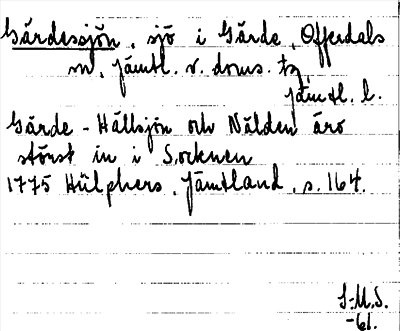 Gärdessjön, sjö i Gärde, Offerdals
sn, Jämtl. v. doms. tg,
Jämtl. l.
Gärde-Hällsjön och Nälden äro
störst in i Socknen
1775 Hülphers, Jämtland, s. 164.
S-M.S.
-61.